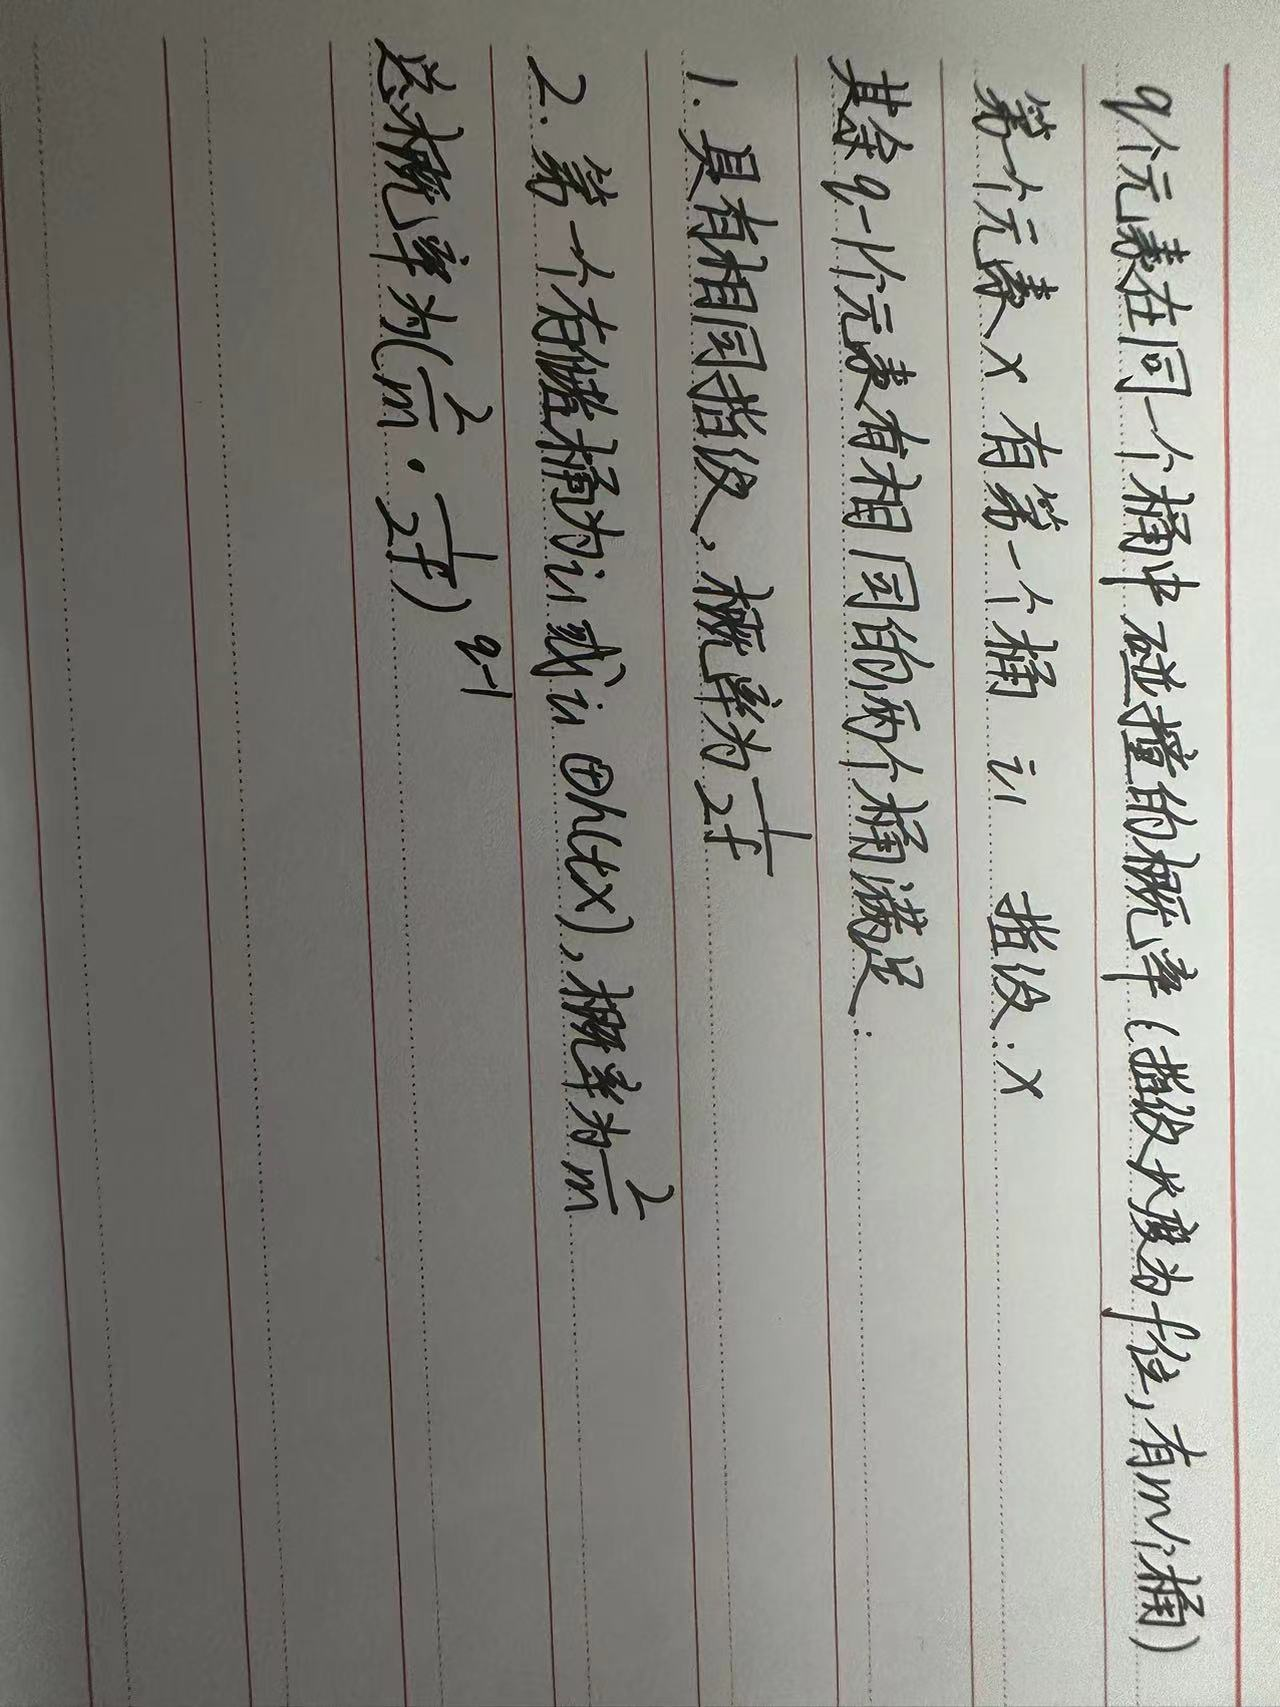 q个元素在同一个桶中碰撞的概率(指纹长度为f位,有m个桶)
第一个元素x 有第一个桶 i1 指纹:x
其余q-1个元素有相同的两个桶满足:
1.具有相同指纹,概率为1/2f
2.第一个存储桶为i1或i1⊕h(tx),概率为2/m
总概率为(2/m·1/2f)^q-1